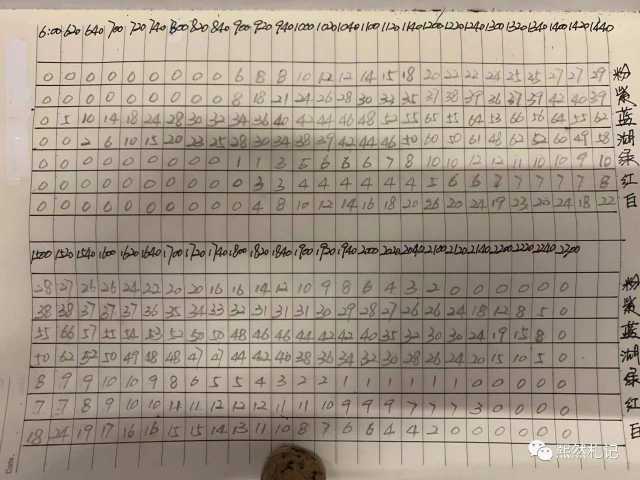 6:00 620 640 700 720 740 800 820 840 900 920 940 1000 1020 1040 1100 1120 1140 1200 1220 1240 1300 1320 1340 1400 1420 1440
0 0 0 0 0 0 0 0 0 6 8 8 10 12 12 14 15 18 20 22 22 24 25 25 27 27 29 粉
0 0 0 0 0 0 0 0 0 8 18 21 24 26 28 30 33 35 37 38 39 36 37 39 42 40 39 紫
0 5 10 14 18 24 28 30 32 34 36 40 42 44 46 48 52 55 65 55 64 53 66 56 64 55 62 蓝
0 0 2 6 10 15 20 23 25 28 30 34 38 39 42 44 46 50 60 50 61 48 62 52 60 49 58 湖
0 0 0 0 0 0 0 0 0 1 1 3 5 6 6 6 7 8 10 10 12 12 11 10 10 9 10 绿
0 0 0 0 0 0 0 0 0 3 3 4 4 4 4 4 4 5 6 6 7 7 7 7 8 红
0 0 0 0 0 0 0 0 0 4 8 10 12 14 16 18 20 26 20 24 19 23 20 24 18 22 白
1500 1520 1540 1600 1620 1640 1700 1720 1740 1800 1820 1840 1900 1920 1940 2000 2020 2040 2100 2120 2140 2200 2220 2240 2200
28 27 26 26 24 22 20 20 16 16 14 12 10 9 8 6 4 3 2 0 0 0 0 0 0 粉
38 38 37 37 37 36 35 34 33 32 31 31 31 30 29 28 27 26 26 24 18 12 8 5 0 紫
55 66 57 55 54 53 52 50 50 48 46 46 44 42 42 40 35 32 30 30 24 19 15 8 0 蓝
50 62 52 50 49 48 48 47 47 44 42 40 38 36 34 32 30 28 26 24 20 15 10 5 0 湖
8 9 9 10 10 9 8 6 5 5 4 3 2 2 1 1 1 1 1 1 0 0 0 0 0 绿
7 7 8 9 10 10 11 11 12 12 12 11 11 10 9 9 9 7 7 7 3 0 0 0 0 红
18 24 19 17 16 16 15 15 14 13 11 10 8 7 6 6 4 4 2 0 0 0 0 0 0 白
Date.
熏然札记